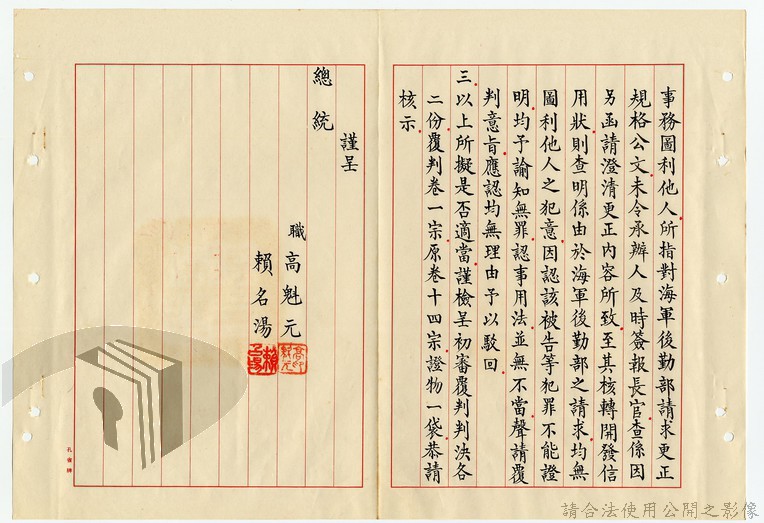 事務圖利他人所指對海軍後勤部請求更正
規格公文未令承辦人及時簽報長官查係因
另函請澄清更正內容所致至其核轉開發信
用狀則查明係由於海軍後勤部之請求均無
圖利他人之犯意因認該被告等犯罪不能證
明均予諭知無罪認事用法並無不當聲請覆
判意旨應認均無理由予以駁回
三以上所擬是否適當謹檢呈初審覆判判決各
二份覆判卷一宗原卷十四宗證物一袋恭請
核示
謹呈
總統
職高魁元
賴名湯
孔雀牌
請合法使用公開之影像